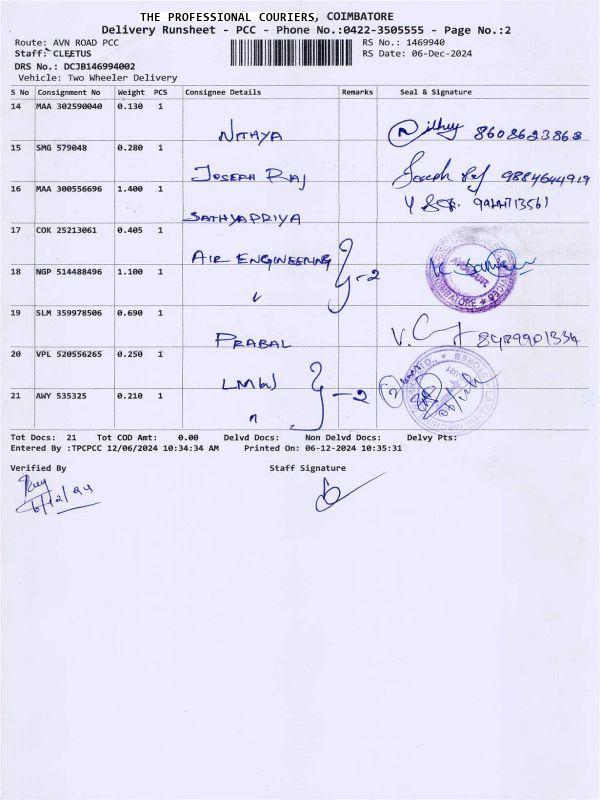 THE PROFESSIONAL COURIERS, COIMBATORE
Delivery Runsheet - PCC - Phone No.:0422-3505555 - Page No.:2
Route: AVN ROAD PCC RS No.: 1469940
Staff: CLEETUS RS Date: 06-Dec-2024
DRS No.: DCJB146994002
Vehicle: Two Wheeler Delivery
S No Consignment No Weight PCS Consignee Details Remarks Seal & Signature
14 MAA 302590040 0.130 1
NITHYA 8608623868
15 SMG 579048 0.280 1
JOSEPH RAJ Joseph Raj 9884644919
16 MAA 300556696 1.400 1
SATHYAPRIYA
17 COK 25213061 0.405 1
AIR ENGINEERING -2
18 NGP 514488496 1.100 1
"
19 SLM 359978506 0.690 1
PRABAL 8489901334
20 VPL 520556265 0.250 1
LMW -2
21 AWY 535325 0.210 1
"
Tot Docs: 21 Tot COD Amt: 0.00 Delvd Docs: Non Delvd Docs: Delvy Pts:
Entered By :TPCPCC 12/06/2024 10:34:34 AM Printed On: 06-12-2024 10:35:31
Verified By Staff Signature
6/12/24